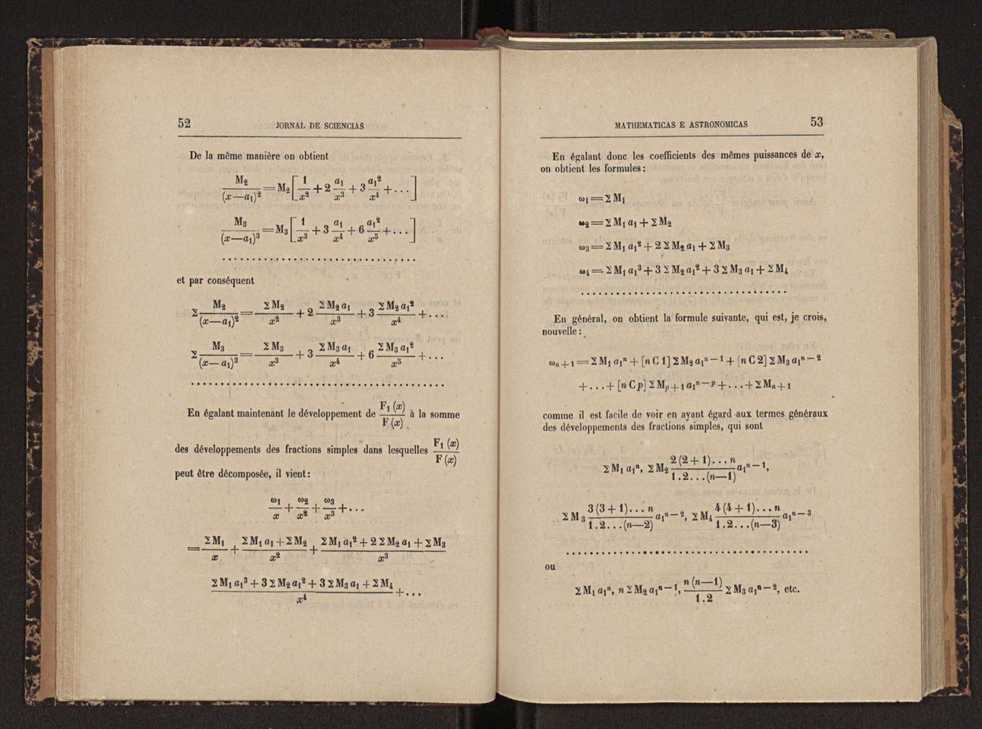 52 JORNAL DE SCIENCIAS
De la même manière on obtient
M₂/(x—a₁)² = M₂[1/x² + 2 a₁/x³ + 3 a₁²/x⁴ + ...]
M₃/(x—a₁)³ = M₃[1/x³ + 3 a₁/x⁴ + 6 a₁²/x⁵ + ...]
et par conséquent
Σ M₂/(x—a₁)² = Σ M₂/x² + 2 Σ M₂ a₁/x³ + 3 Σ M₂ a₁²/x⁴ + ...
Σ M₃/(x—a₁)³ = Σ M₃/x³ + 3 Σ M₃ a₁/x⁴ + 6 Σ M₃ a₁²/x⁵ + ...
En égalant maintenant le développement de F₁ (x)/F (x) à la somme
des développements des fractions simples dans lesquelles F₁ (x)/F (x)
peut être décomposée, il vient:
ω₁/x + ω₂/x² + ω₃/x³ + ...
= Σ M₁/x + Σ M₁ a₁ + Σ M₂/x² + Σ M₁ a₁² + 2 Σ M₂ a₁ + Σ M₃/x³
Σ M₁ a₁³ + 3 Σ M₂ a₁² + 3 Σ M₃ a₁ + Σ M₄/x⁴ + ...
MATHEMATICAS E ASTRONOMICAS 53
En égalant donc les coefficients des mêmes puissances de x,
on obtient les formules:
ω₁ = Σ M₁
ω₂ = Σ M₁ a₁ + Σ M₂
ω₃ = Σ M₁ a₁² + 2 Σ M₂ a₁ + Σ M₃
ω₄ = Σ M₁ a₁³ + 3 Σ M₂ a₁² + 3 Σ M₃ a₁ + Σ M₄
En général, on obtient la formule suivante, qui est, je crois,
nouvelle:
ωₙ₊₁ = Σ M₁ a₁ⁿ + [n C 1] Σ M₂ a₁ⁿ⁻¹ + [n C 2] Σ M₃ a₁ⁿ⁻²
+ ... + [n C p] Σ Mₚ₊₁ a₁ⁿ⁻ᵖ + ... + Σ Mₙ₊₁
comme il est facile de voir en ayant égard aux termes généraux
des développements des fractions simples, qui sont
Σ M₁ a₁ⁿ, Σ M₂ 2 (2 + 1) ... n/1 . 2 ... (n—1) a₁ⁿ⁻¹,
Σ M₃ 3 (3 + 1) ... n/1 . 2 ... (n—2) a₁ⁿ⁻², Σ M₄ 4 (4 + 1) ... n/1 . 2 ... (n—3) a₁ⁿ⁻³
ou
Σ M₁ a₁ⁿ, n Σ M₂ a₁ⁿ⁻¹, n (n—1)/1 . 2 Σ M₃ a₁ⁿ⁻², etc.